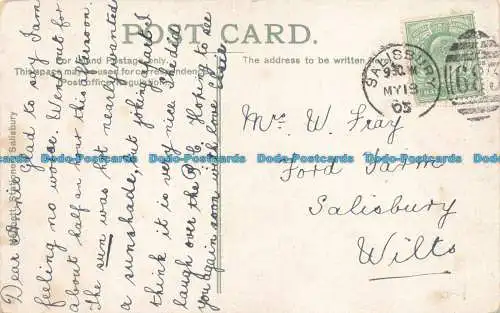 POST CARD.
For Inland Postage only.
This space may be used for correspondence
Post office Regulation
The address to be written here.
SALISBURY
9 30 AM
MY 18
05
Mrs W. Fray
Ford Farm
Salisbury
Wilts
Stationer, Salisbury
Dear
Glad to say I am
feeling no worse. Went out for
about half an hour this afternoon.
The sun was hot nearly wanted
a sunshade, but joking apart I
think it is very nice. I had
laugh over the P.C. Hoping to see
you again soon with love
Dodo-Postcards Dodo-Postcards Dodo-Postcards Dodo-Postcards Dodo-Postcards